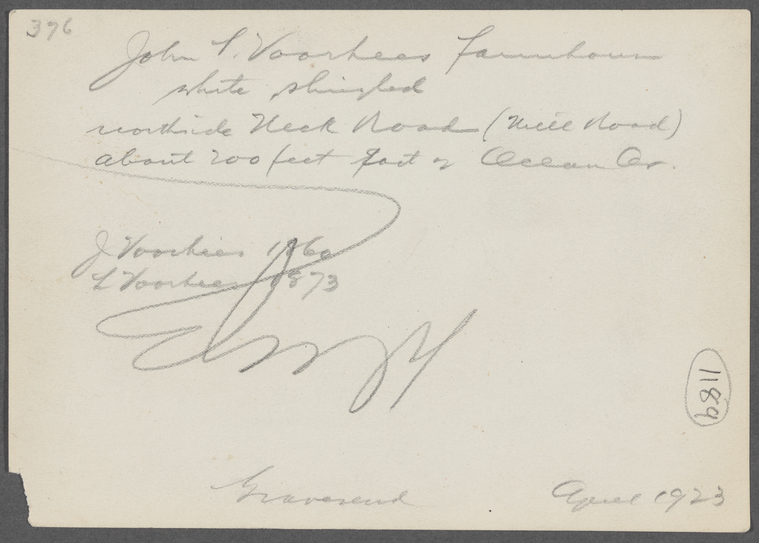 376
John L. Voorhees Farmhouse
white shingled
northside Neck Road (Mill Road)
about 200 feet East of Ocean Av.
J Voorhies 1860
L Voorhees 1873
1189
Gravesend April 1923